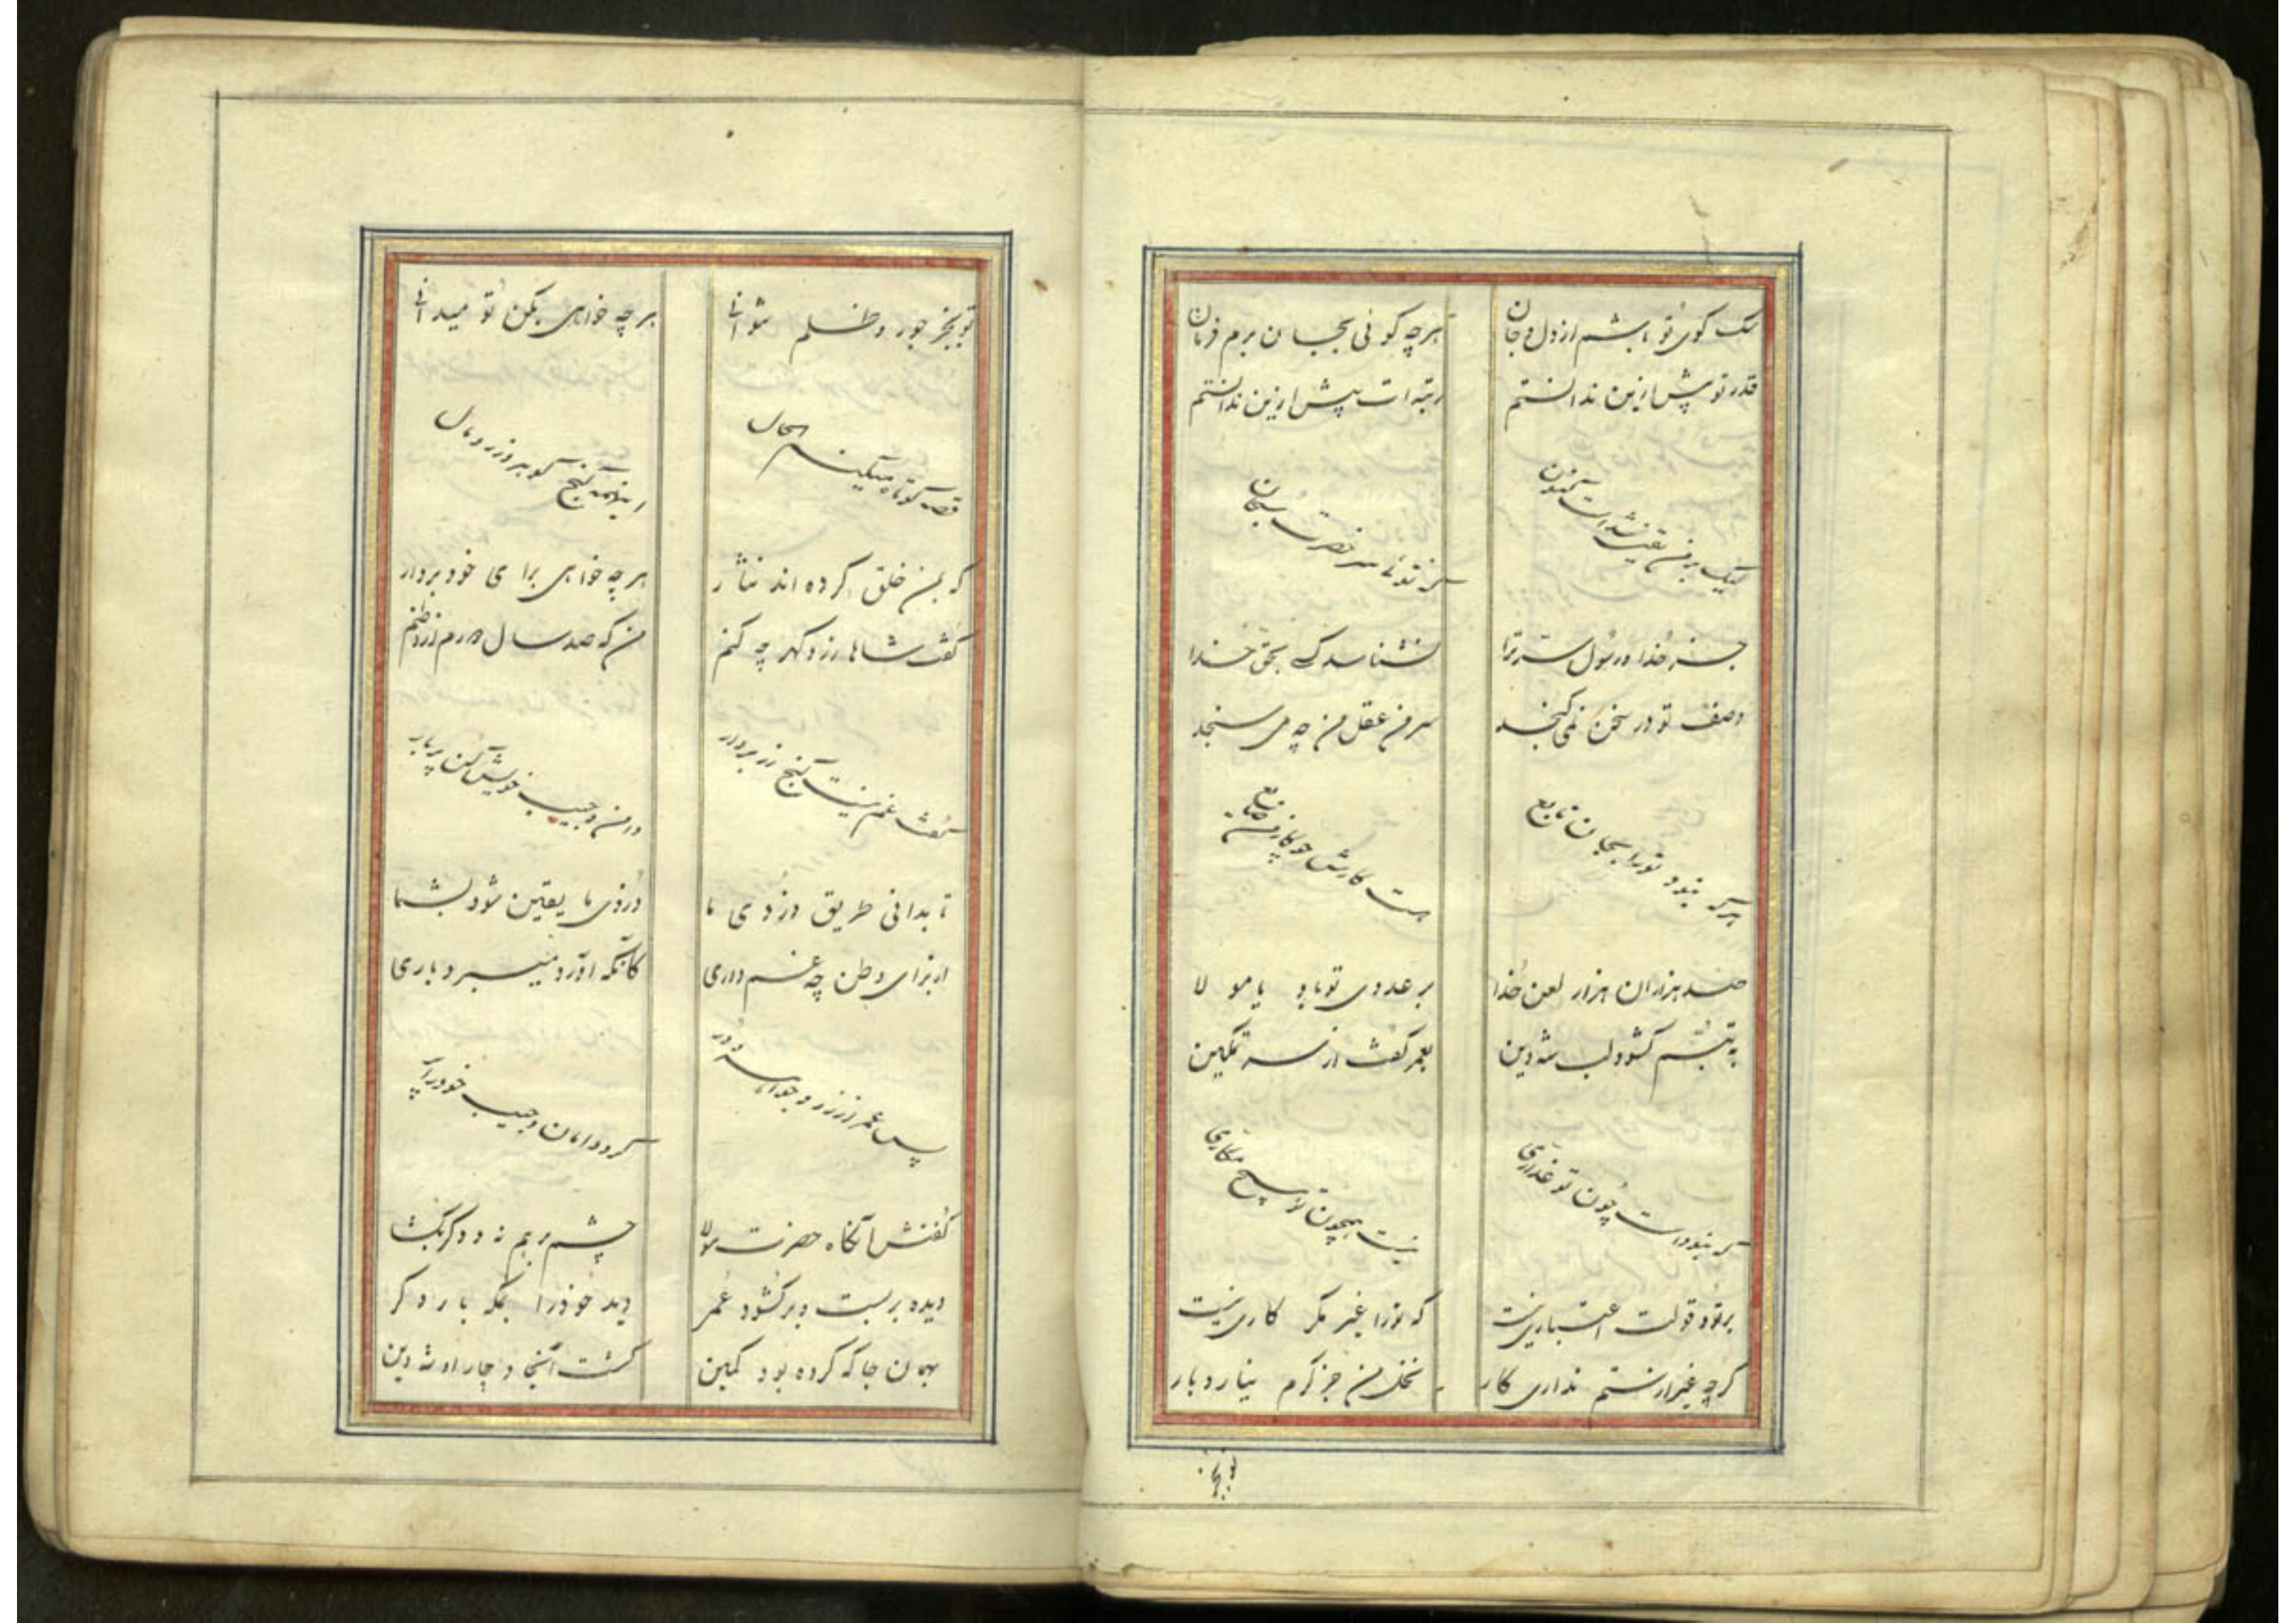 سک کوی تو باشم از دل و جان هرچه کوئی بجان برم فرمان
قدر تو پیش ازین ندانستم رتبه ات پیش ازین ندانستم
لیک بر من یقین شد است کنون
جز خدا و رسول سر ترا نشناسد کسی بحق خدا
وصف تو در سخن نمی کنجد سر من عقل من چه می سنجد
هرکه نبود تو را بجان تابع هست کارش چو کار من ضایع
صد هزاران هزار لعن خدا بر عدوی تو باد یا مولا
به تبسم کشود لب شه دین بعمر کفت از سر تمکین
که نبوداست چون تو غداری نیست همچون تو هیچ مکاری
بر تو و قولت اعتباری نیست که تو را غیر مکر کاری نیست
کرچه غیر از ستم نداری کار نخل من جز کرم نیارد بار
تو بجز
تو بجز جور و ظلم نتوانی هرچه خواهی بکن تو میدانی
قصه کوتاه میکنم الحال اینهمه کنج کوهر و زر و مال
که بمن خلق کرده اند نثار هرچه خواهی برای خود بردار
کفت شاها زر و کهر چه کنم من که صد سال از وطنم
کفت غم نیست کنج زر بردار دامن و جیب خویش کن پر بار
تا بدانی طریق دزدی ما دزدی ما یقین شود بشما
از برای وطن چه غم داری کانکه آورد میبرد باری
پس عمر از زر و جواهر و در کرد دامان و جیب خود را پر
کفتش آنکاه حضرت مولا چشم بر هم نه و دکر بکشا
دیده بر بست و بر کشود عمر دید خود را بمکه بار دکر
بهمان جا که کرده بود کمین کشت آنجا دچار او شه دین